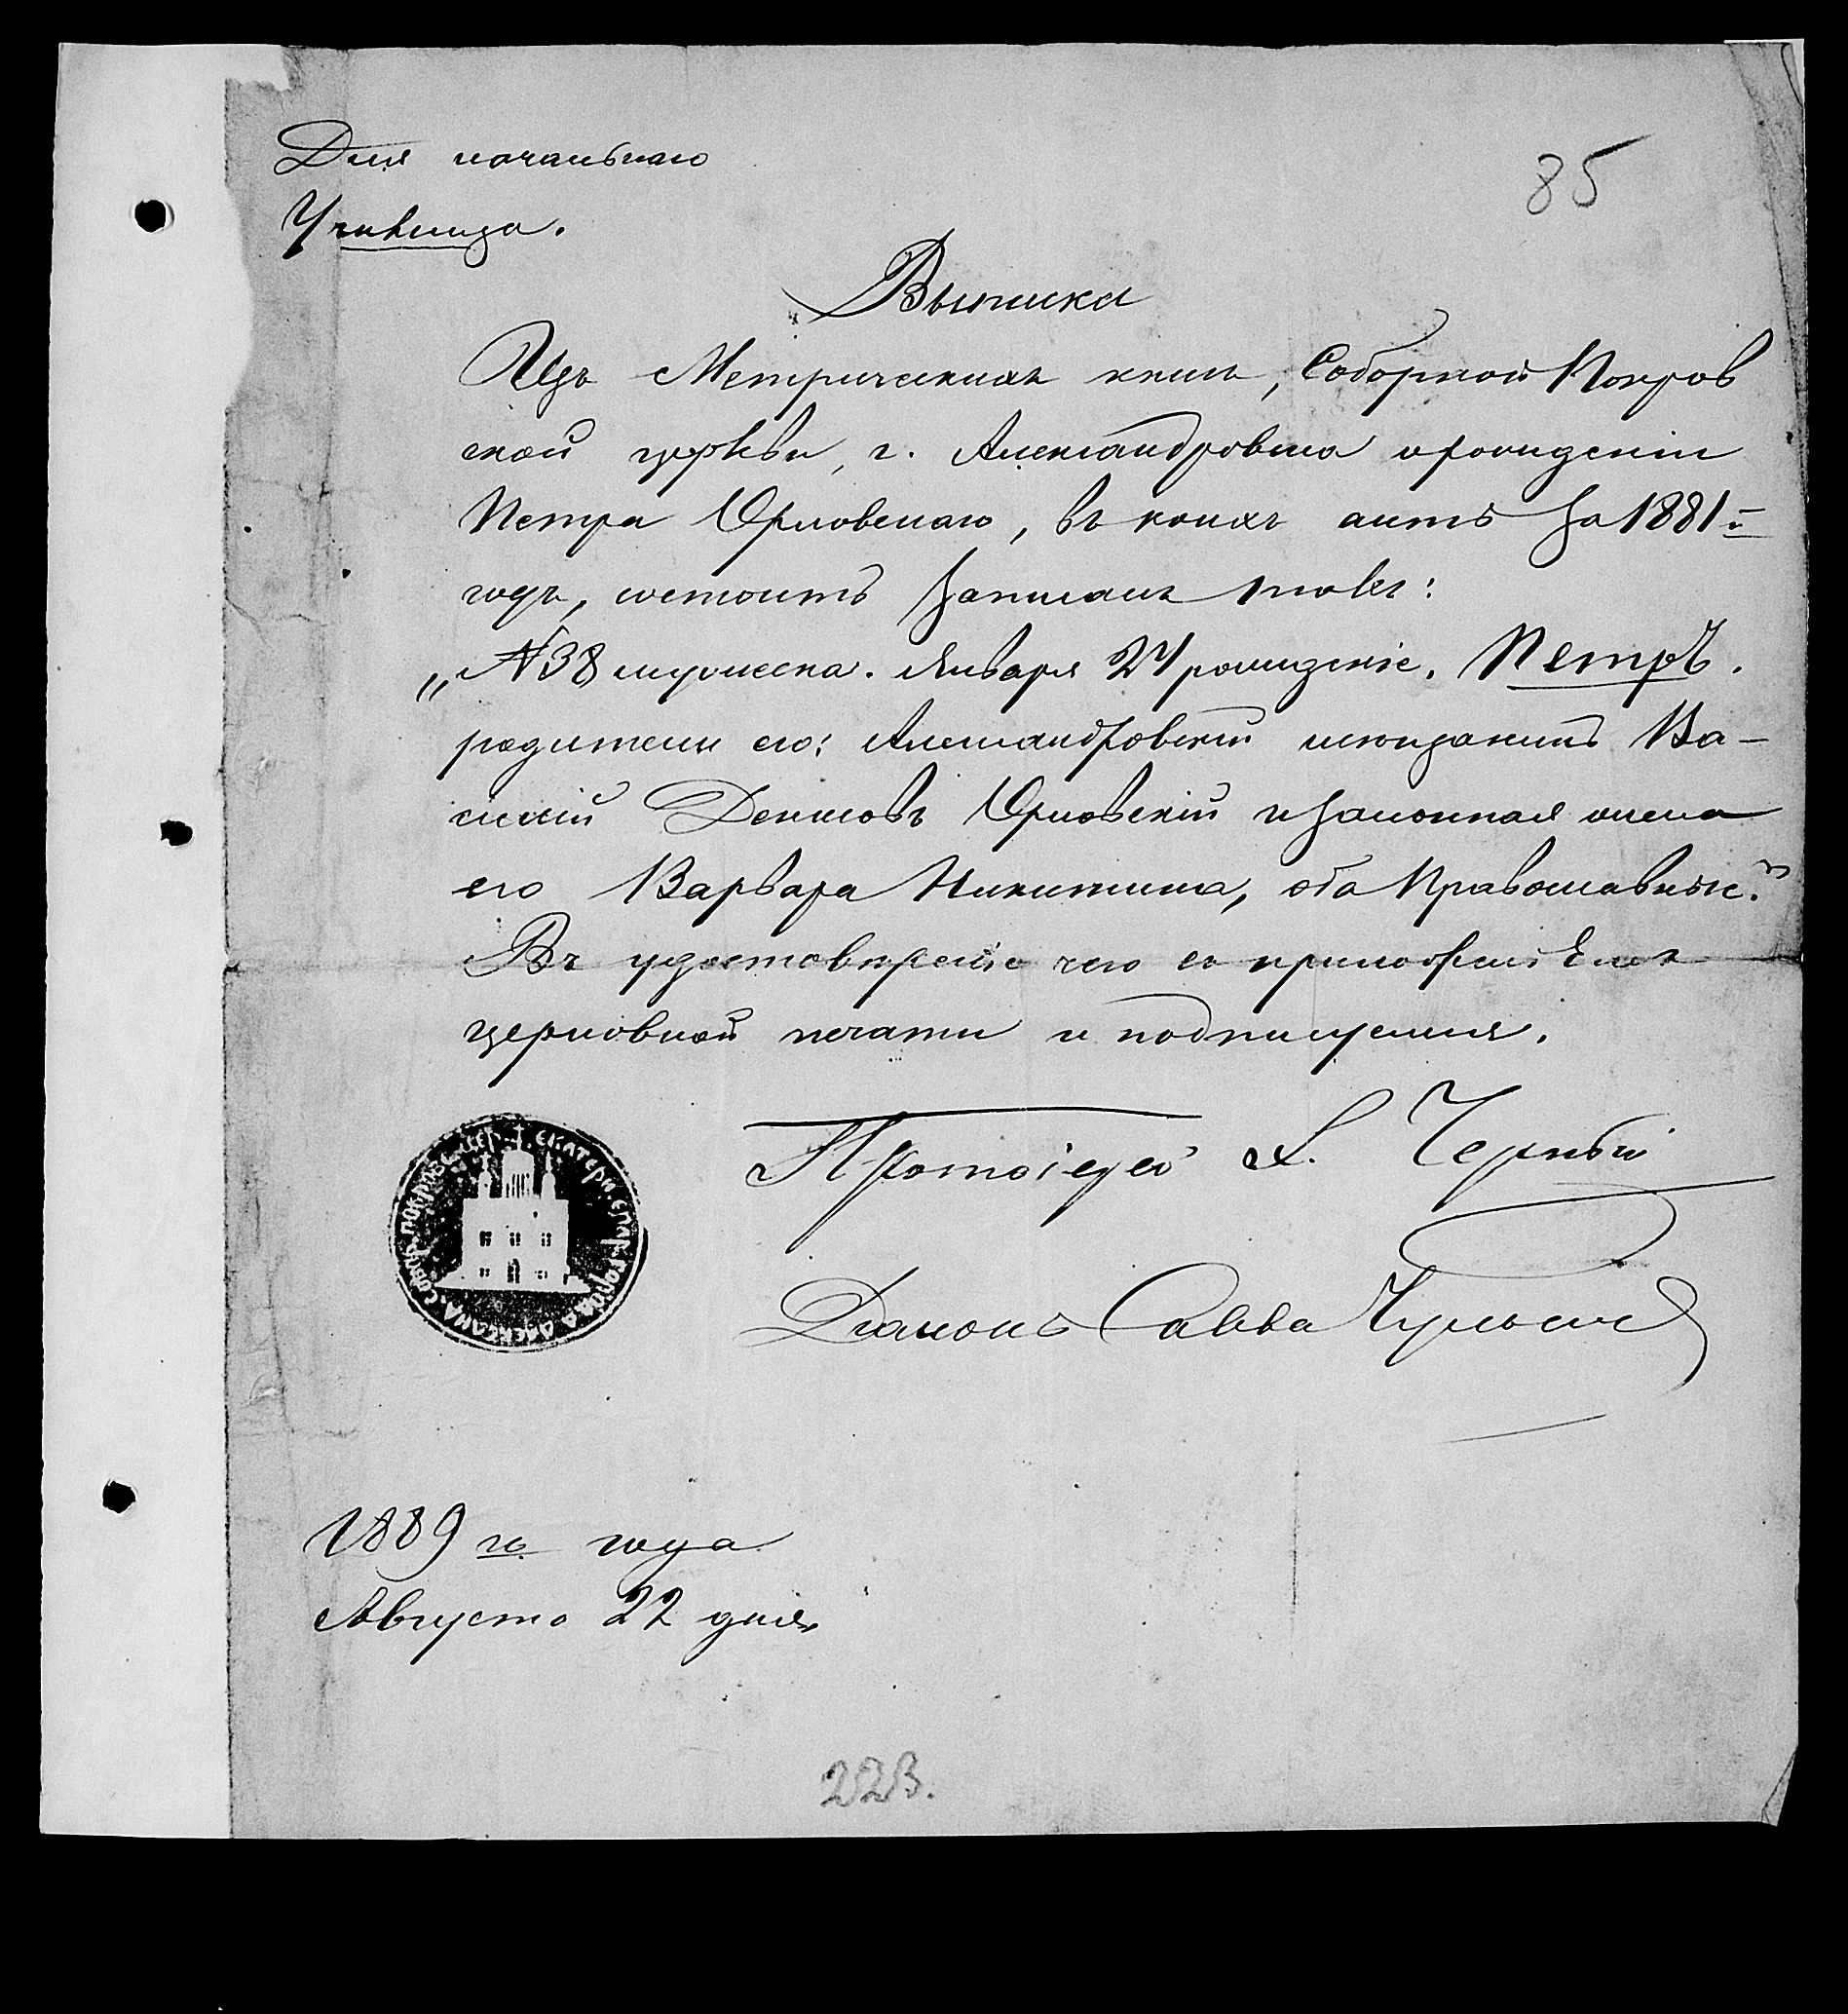 Для начальнаго
Училища.
85
Выписка
Изъ Метрическихъ книгъ, Соборной Покров
ской церкви, г. Александровска о рожденіи
Петра Орловскаго, въ коихъ актъ за 1881-й
годъ, состоитъ записанъ такъ:
„№38 мужеска. Января 24 рожденіе. Петръ.
родители его: Александровскій мѣщанинъ Ва-
силій Денисовъ Орловскій и законная жена
его Варвара Никитина, оба Православные."
Въ удостовѣреніе чего съ приложеніемъ
церковной печати и подпишемся.
Протоіерей Черный
Діаконъ Савва
1889 го года
Августа 22 дня
223.